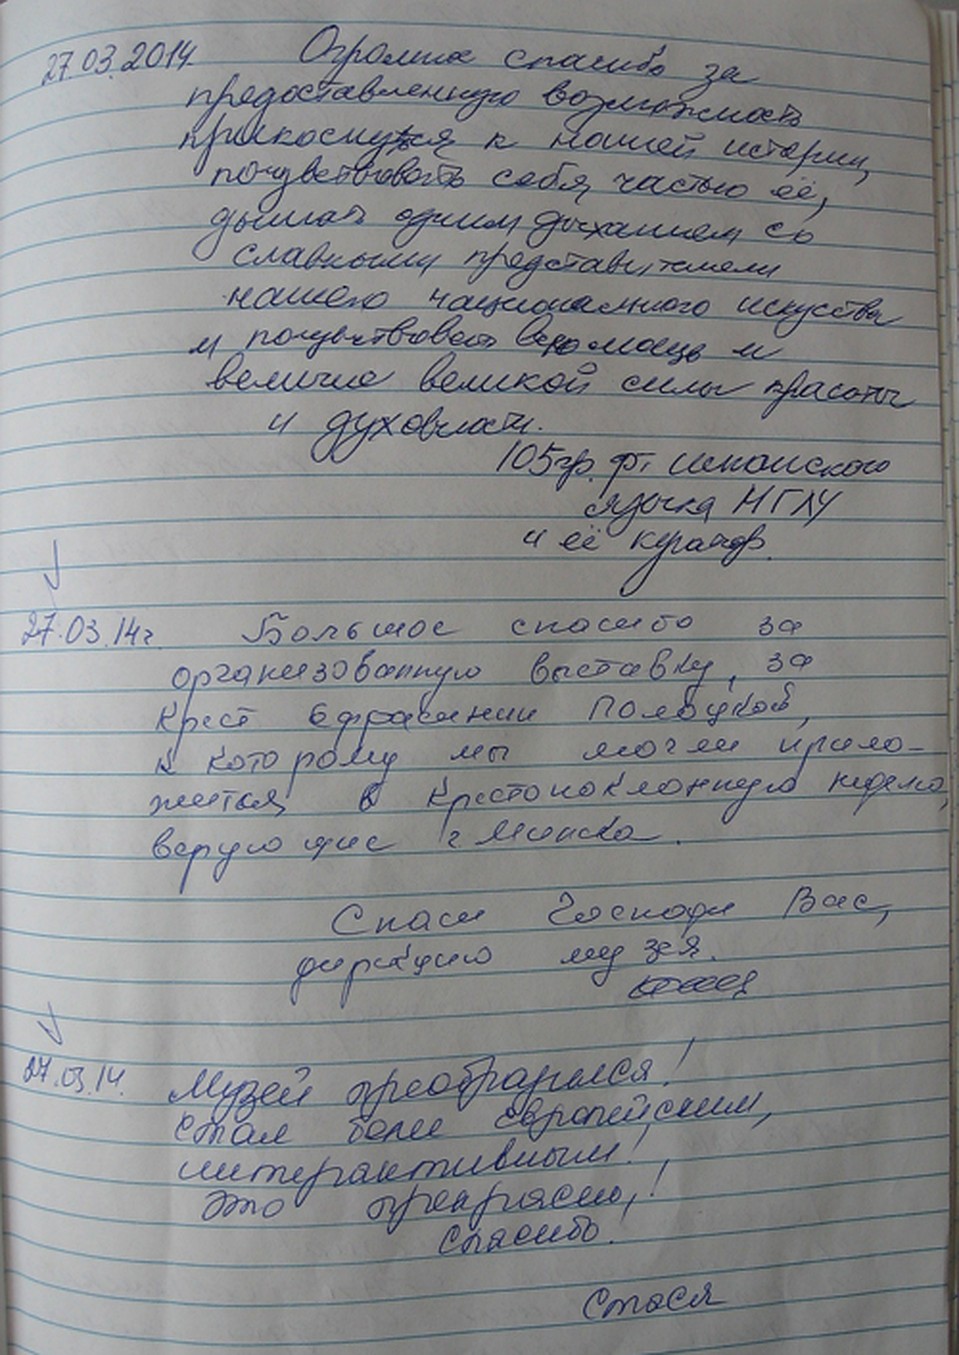 27.03.2014 Огромное спасибо за
предоставленную возможность
прикоснуться к нашей истории,
почувствовать себя частью её,
дышать одним дыханием со
славными представителями
нашего национального искусства
и почувствовать всю мощь и
величие великой силы красоты
и духовности.
105 гр. ф. испанского
языка МГЛУ
и её куратор.
27.03.14г. Большое спасибо за
организованную выставку, за
Крест Ефрасинии Полоцкой,
к которому мы могли прило-
жится, в Крестопоклонную неделю,
верующие г. Минска.
Спаси Господи Вас,
дирекцию музея.
27.03.14. Музей преобразился!
Стал более европейским,
интерактивным!
Это прекрасно!
Спасибо.
Стася